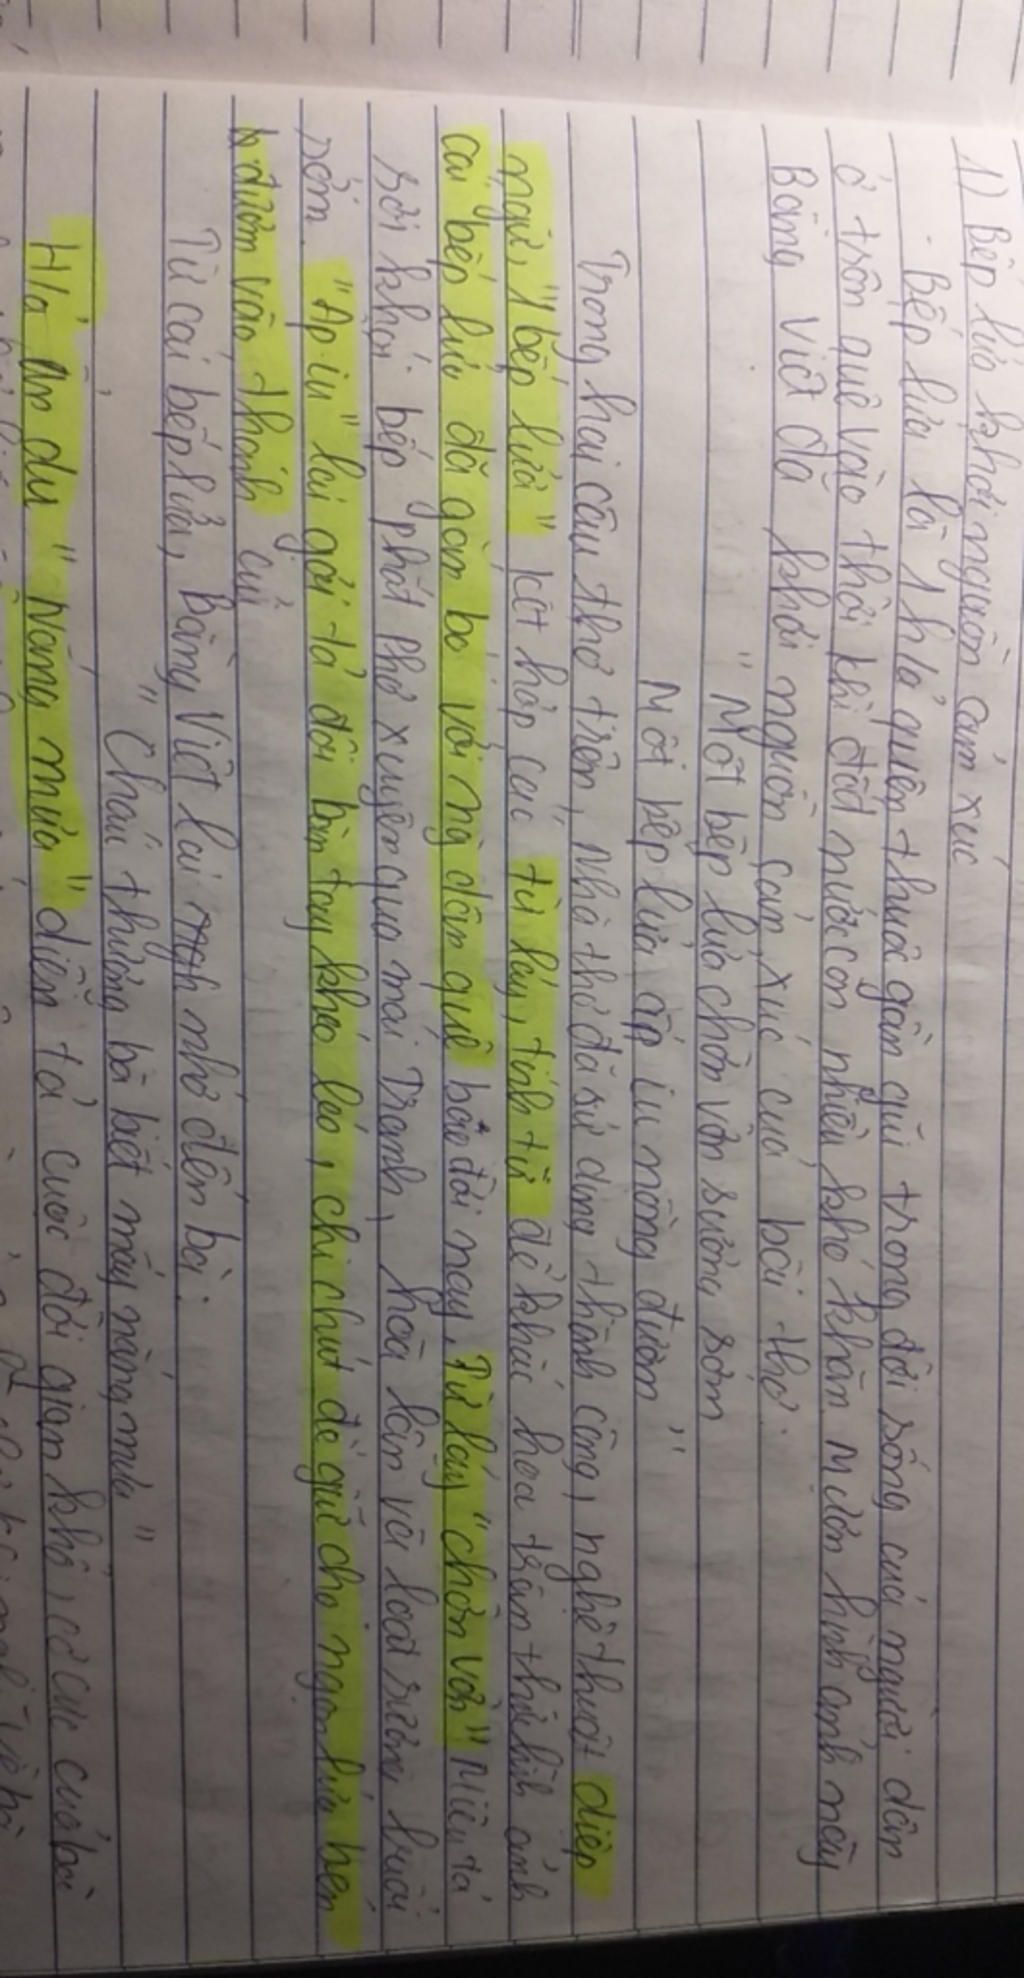 1) Bếp lửa khơi nguồn cảm xúc
- Bếp lửa là 1 h/ả quen thuộc gần gũi trong đời sống của người dân
ở trôn quê vào thời kì đất nước còn nhiều khó khăn. Mượn hình ảnh này
Bằng Việt đã khơi nguồn cảm xúc của bài thơ.
" Một bếp lửa chờn vờn sương sớm
Một bếp lửa ấp iu nồng đượm "
Trong hai câu thơ trên, nhà thơ đã sử dụng thành công, nghệ thuật điệp
ngữ, "bếp lửa" kết hợp các từ láy, tính từ để khắc họa hình ảnh
cái bếp lửa đã gắn bó với ng dân quê bao đời nay. Từ láy "chờn vờn" Miêu tả
sợi khói bếp phất phơ xuyên qua mái Tranh, hòa lẫn với loạt sương buổi
sớm. "Ấp iu" lại gợi tả đôi bàn tay khéo léo, chi chút để giữ cho ngọn lửa bén
đượm vào thành củi
Từ cái bếp lửa, Bằng Việt lại nhớ đến bà:
" Cháu thương bà biết mấy nắng mưa"
H/ả ẩn dụ " Nắng mưa" diễn tả cuộc đời gian khổ, cơ cực của bà